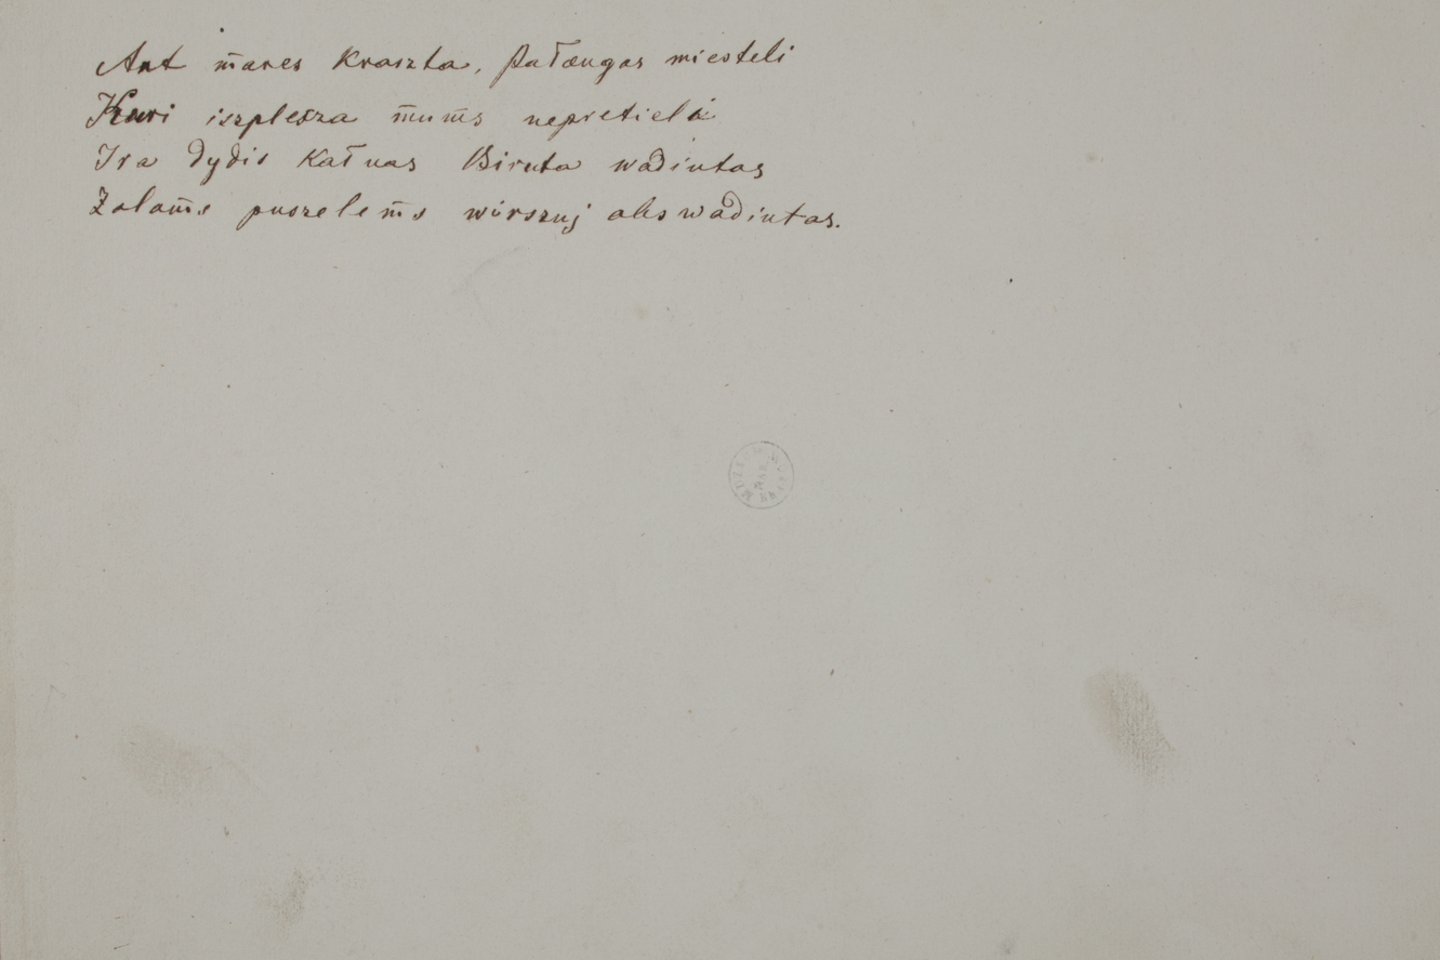 Ant m̄ares Kraszta, Pałangas miesteli
Kuri iszplesza m̄um̄s nepretieli
Ira dydis Kałnas Biruta wadintas
Zalam̄s puszelem̄s wirszuj abswadintas.